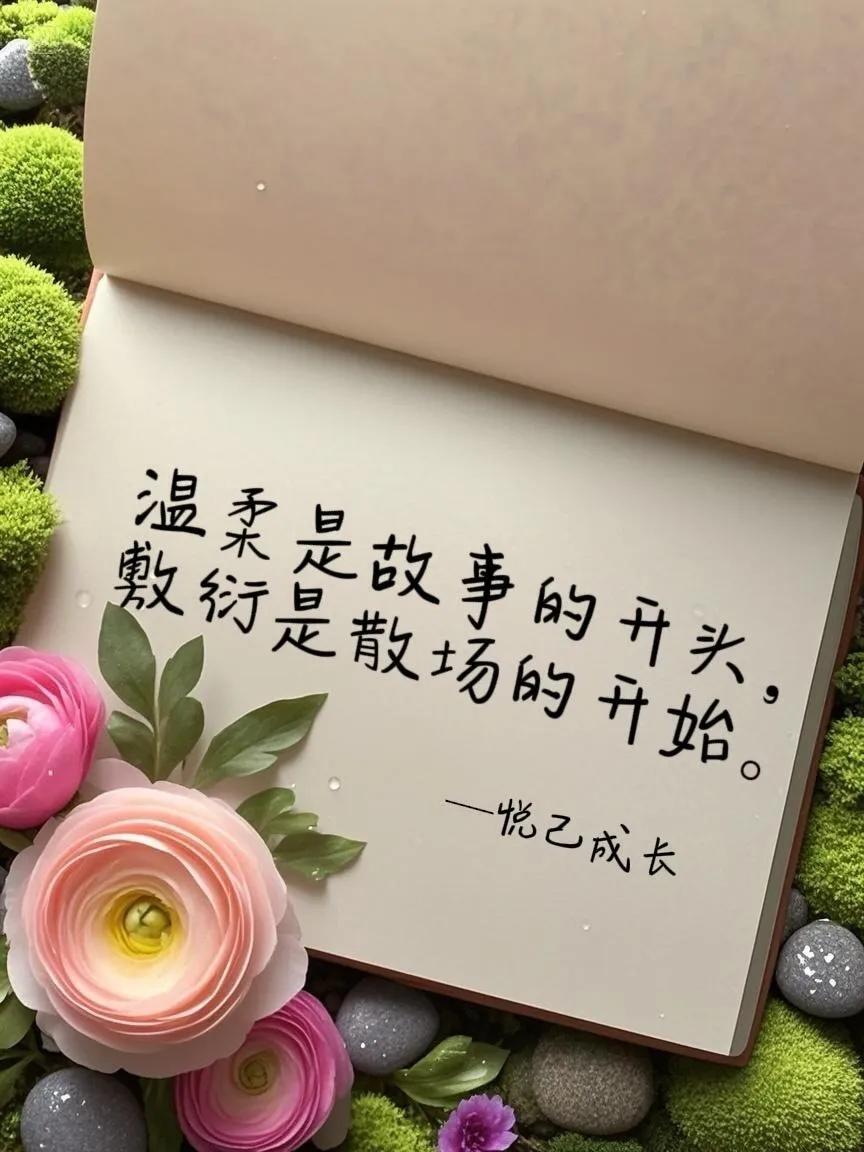 温柔是故事的开头，
敷衍是散场的开始。
——悦己成长